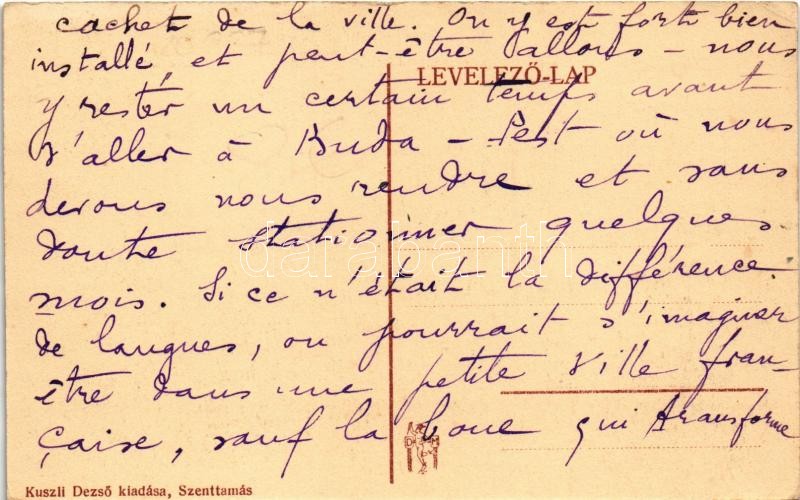 cachet de la ville. On y est fort bien
installé, et peut-être allons-nous
LEVELEZŐ-LAP
y rester un certain temps avant
d'aller à Buda-Pest où nous
devons nous rendre et sans
doute stationner quelques
mois. Si ce n'était la différence
de langues, on pourrait s'imaginer
être dans une petite ville fran-
çaise, sauf la boue qui transforme
D M
Kuszli Dezső kiadása, Szenttamás
darabanth